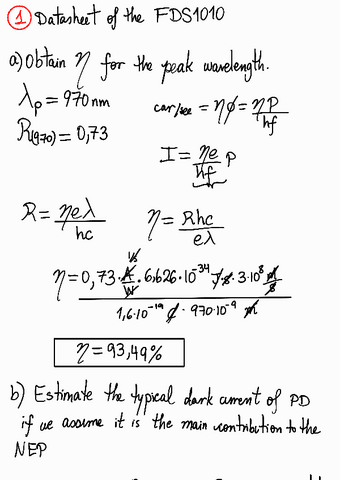 ① Datasheet of the FDS1010
a) Obtain η for the peak wavelength.
λp = 970 nm
car/sec = ηϕ = ηP/hf
R(970) = 0,73
I = ηe/hf P
R = ηeλ/hc
η = Rhc/eλ
η = 0,73 · A/W · 6,626·10^-34 J·s · 3·10^8 m/s
1,6·10^-19 C · 970·10^-9 m
η = 93,49%
b) Estimate the typical dark current of PD
if we assume it is the main contribution to the
NEP